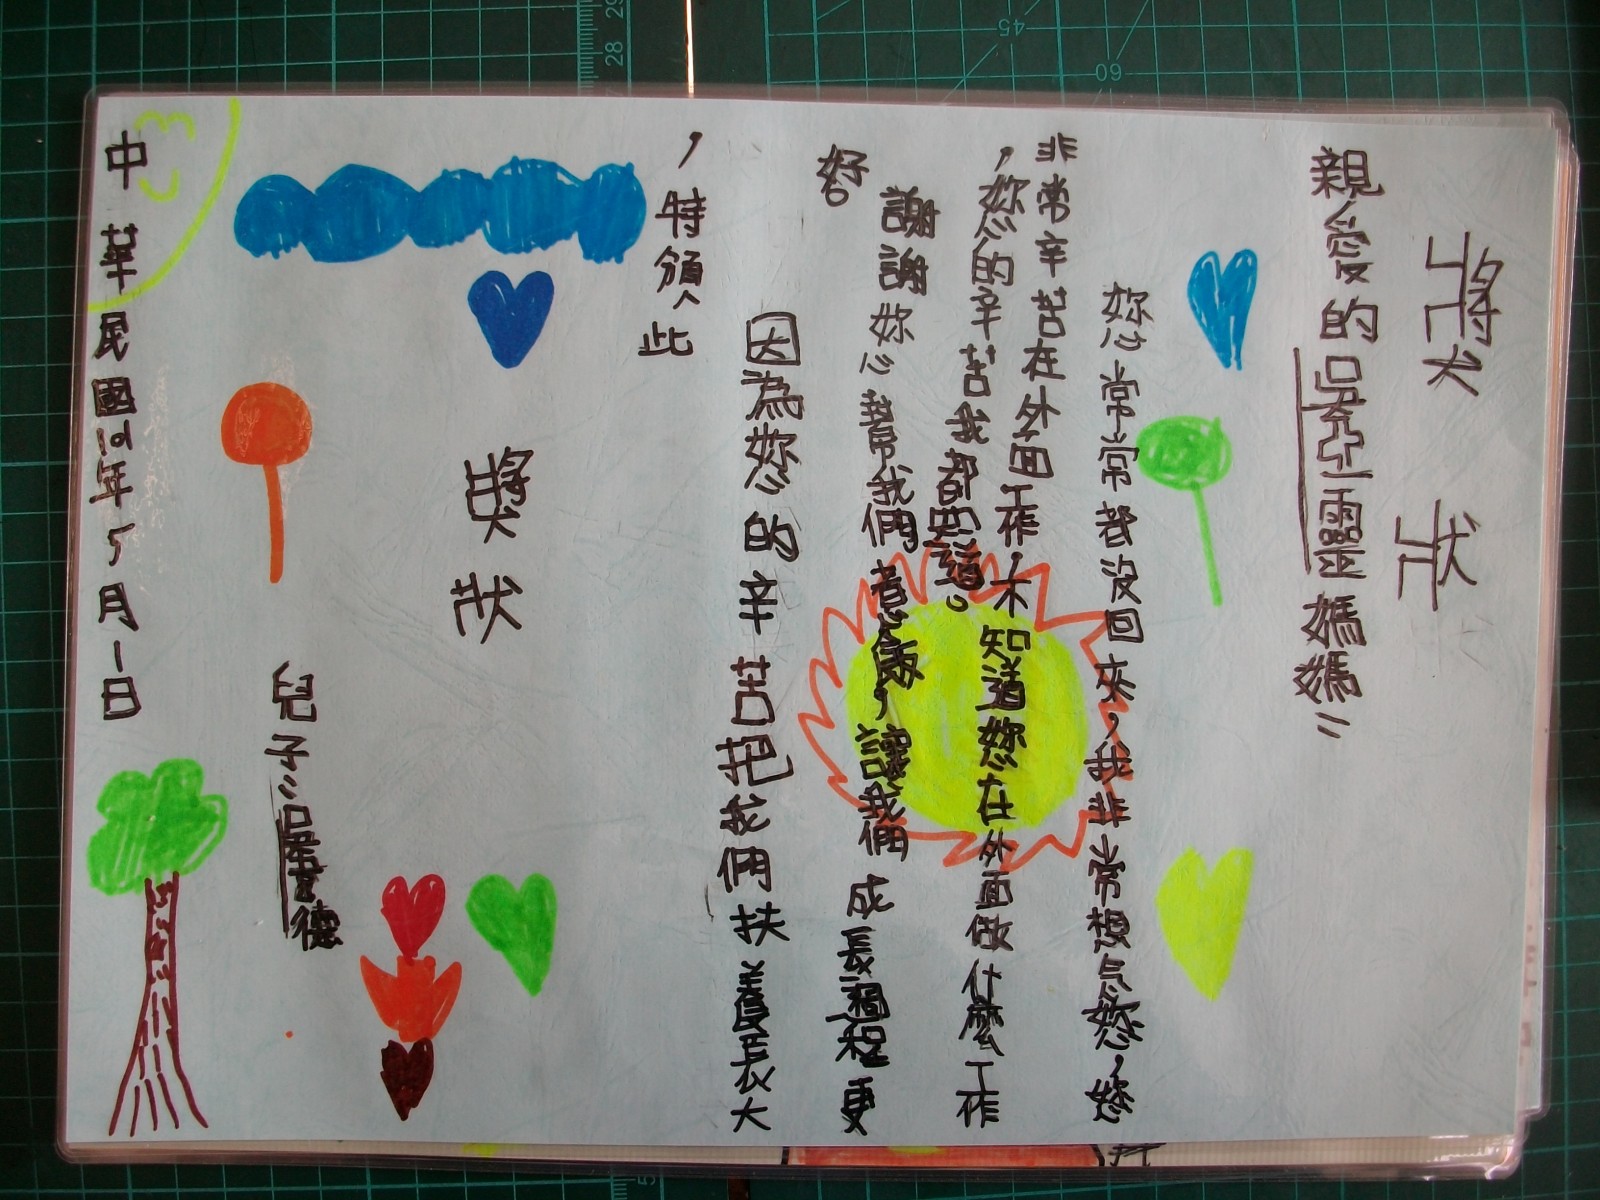 獎狀
親愛的吳亞靈媽媽：
您常常都沒回來，我非常想念您，您
非常辛苦在外面工作，不知道您在外面做什麼工作
，您的辛苦我都知道。
謝謝您幫我們煮飯，讓我們成長過程更
好
因為您的辛苦把我們扶養長大
，特頒此
獎狀
兒子：德
中華民國101年5月1日
29
28
45
60